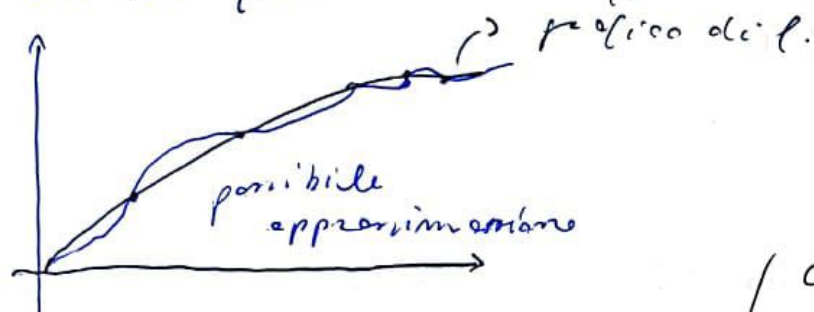 grafico di f.
possibile
approssimazione